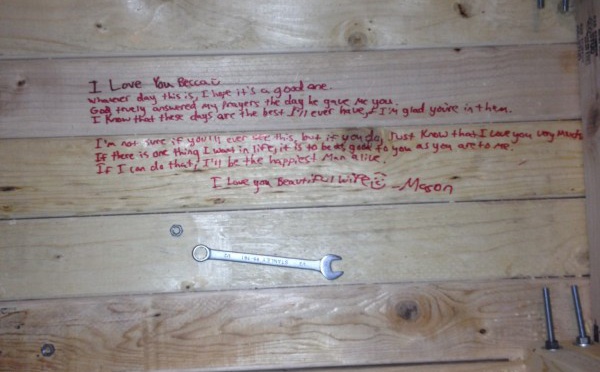 I Love You Becca
Whatever day this is, I hope it's a good one.
God truely answered my prayers the day he gave me you.
I know that these days are the best I'll ever have, & I'm glad you're in them.
I'm not sure if you'll ever see this, but if you do, Just know that I love you very much.
If there is one thing I want in life, it is to be as good to you as you are to me.
If I can do that, I'll be the happiest man alive.
I love you Beautiful Wife
-Mason
STANLEY